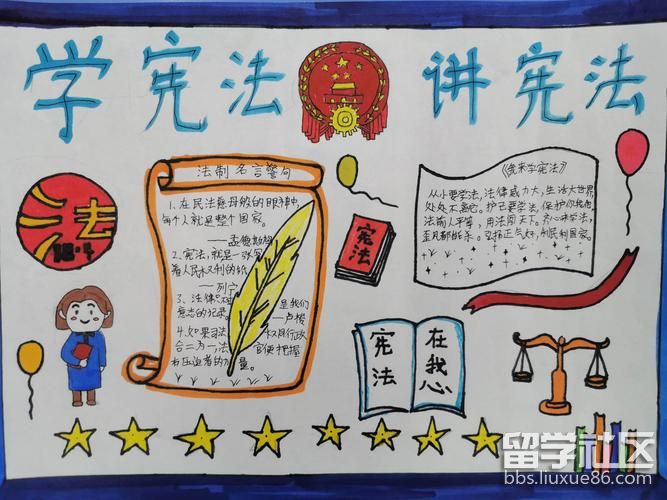 学宪法 讲宪法
法
12·4
法制名言警句
1、在民法慈母般的眼神中,
每个人就是整个国家。
——孟德斯鸠
2、宪法,就是一张写
着人民权利的纸
——列宁
3、法律 是我们
意志的记录 —卢梭
4、如果司法 权同行政
合二为一,法 官便把握
有压迫者的力量。
宪法
《我来学宪法》
从小要学法,法律威力大,生活大世界
处处不离它。护己要学法,保护你我他
法前人平等,用法闯天下。齐心来学法,
歪风都能杀。坚持正气好,利民利国家。
宪法
在我心
留学社区
bbs.liuxue86.com